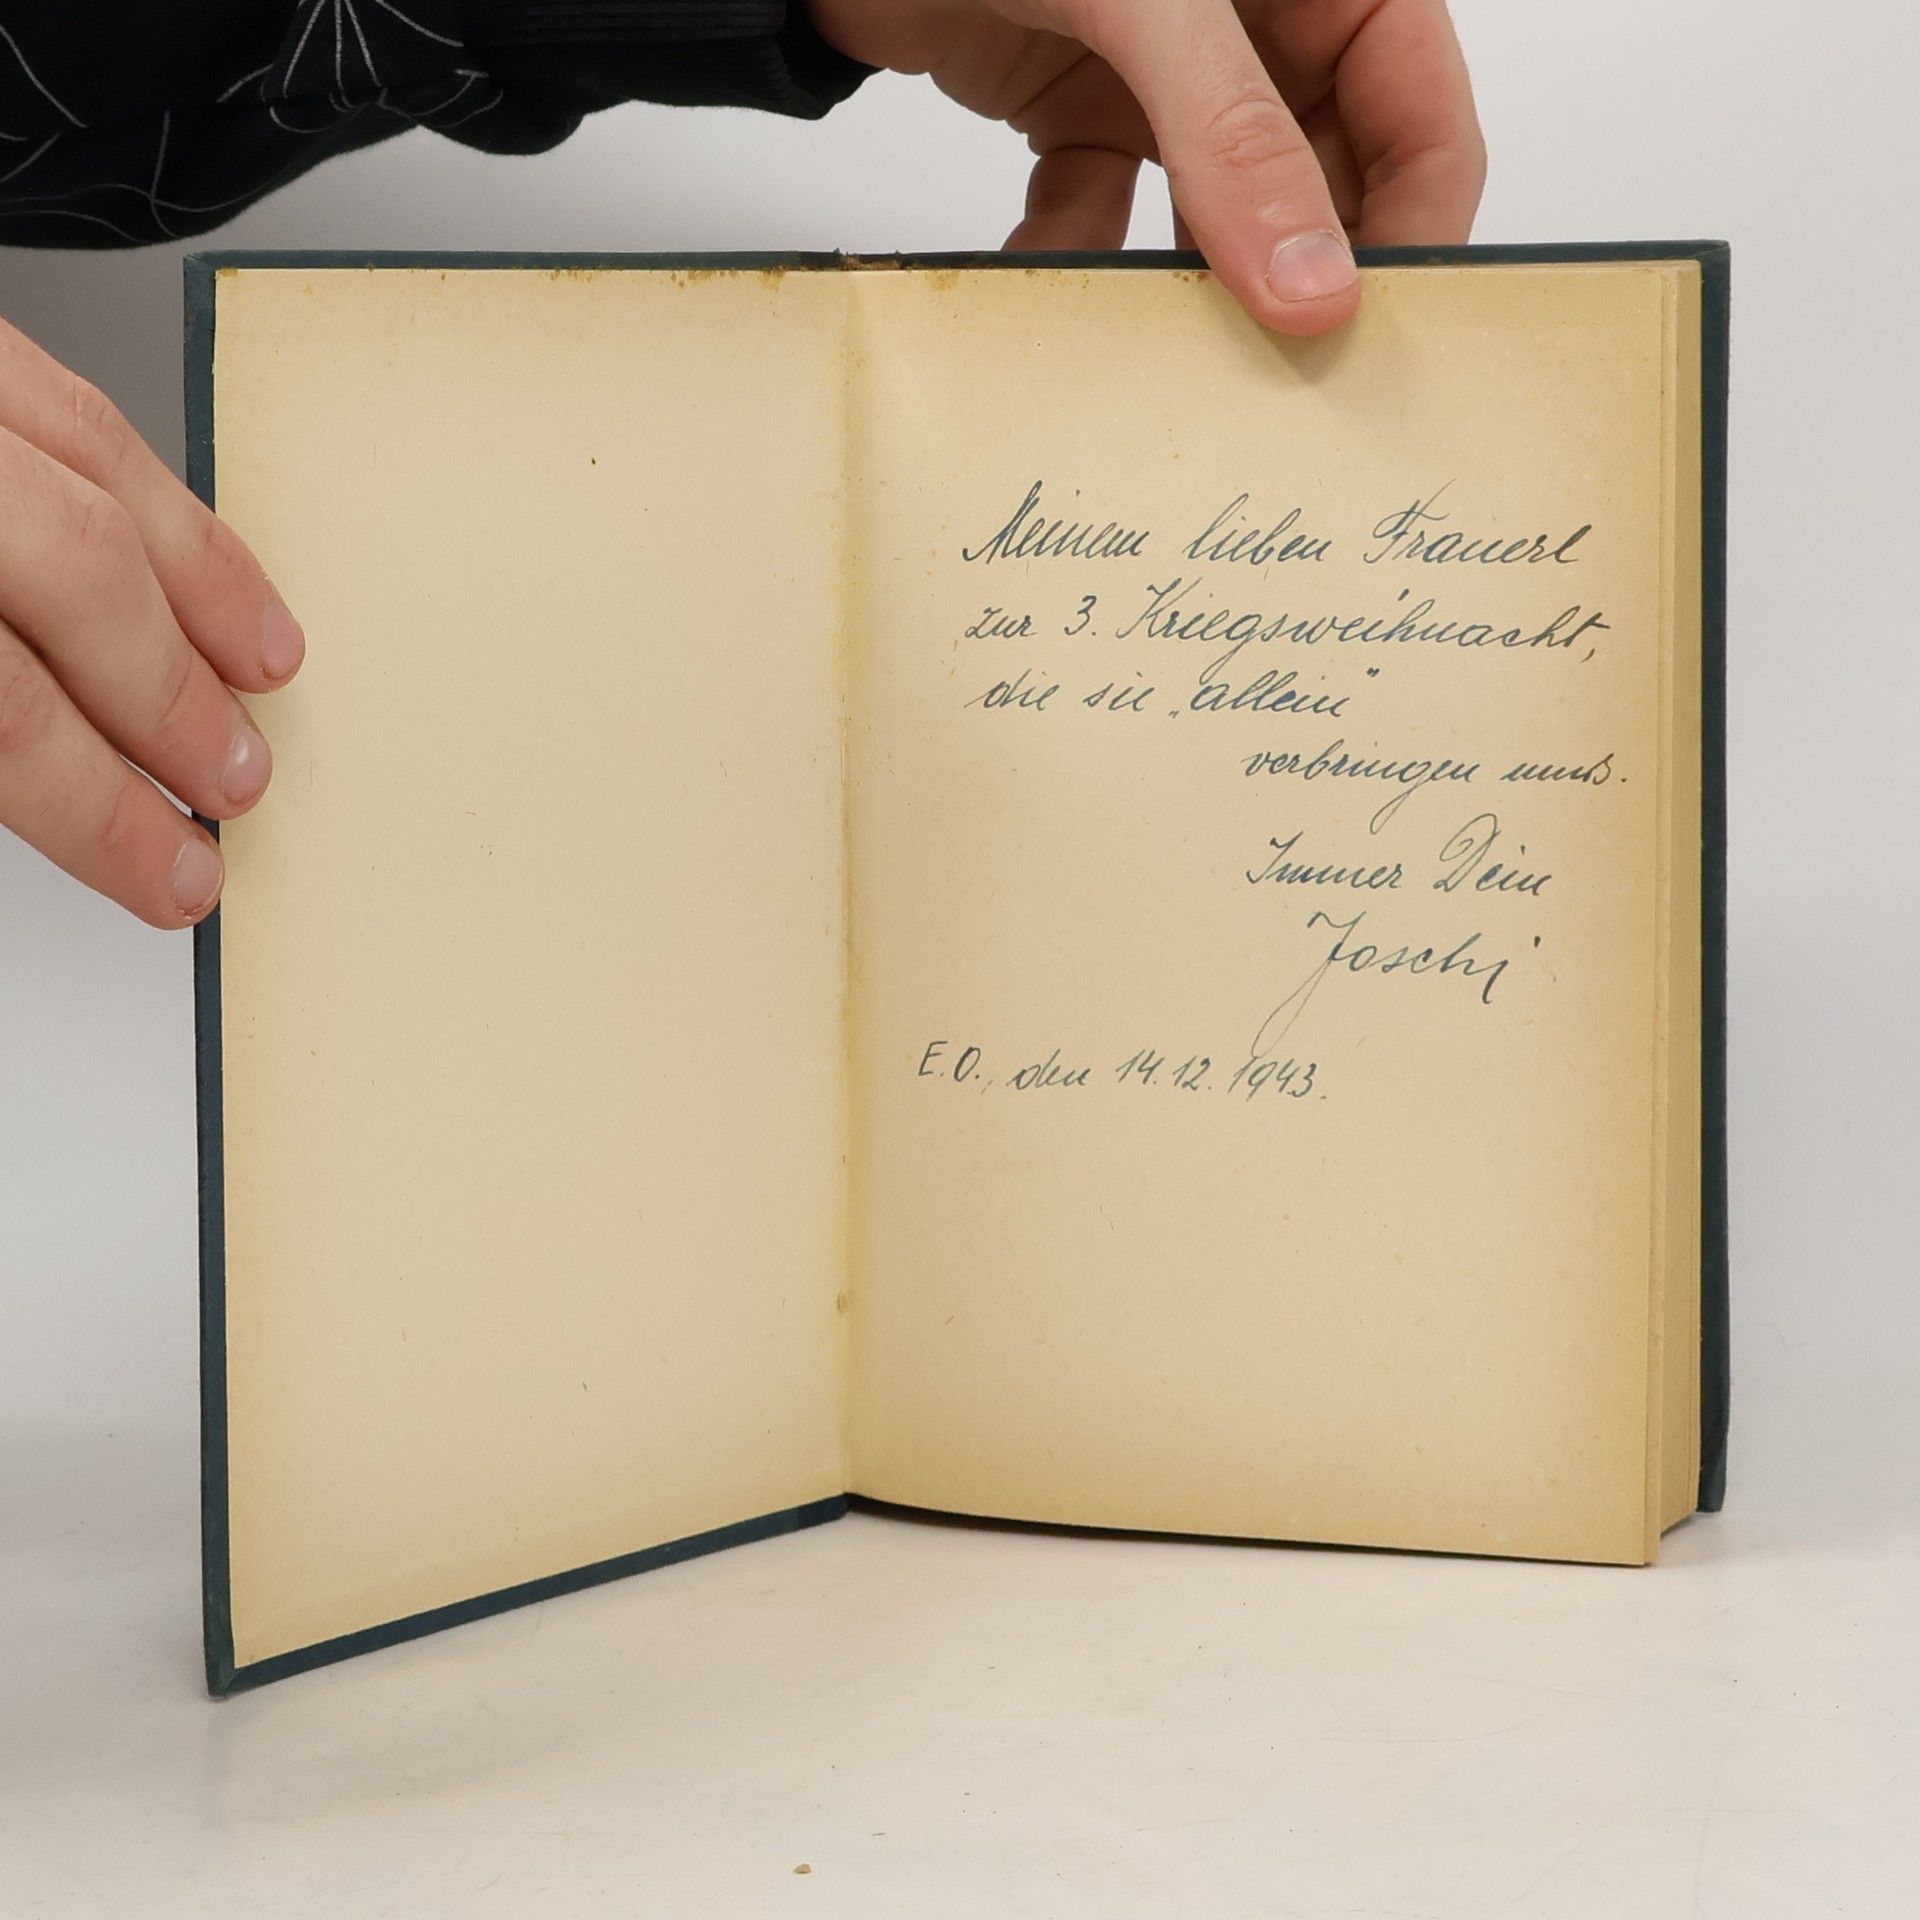 Meinem lieben Frauerl
zur 3. Kriegsweihnacht,
die sie „allein"
verbringen muß.
Immer Dein
Joschi
E.O., den 14.12.1943.